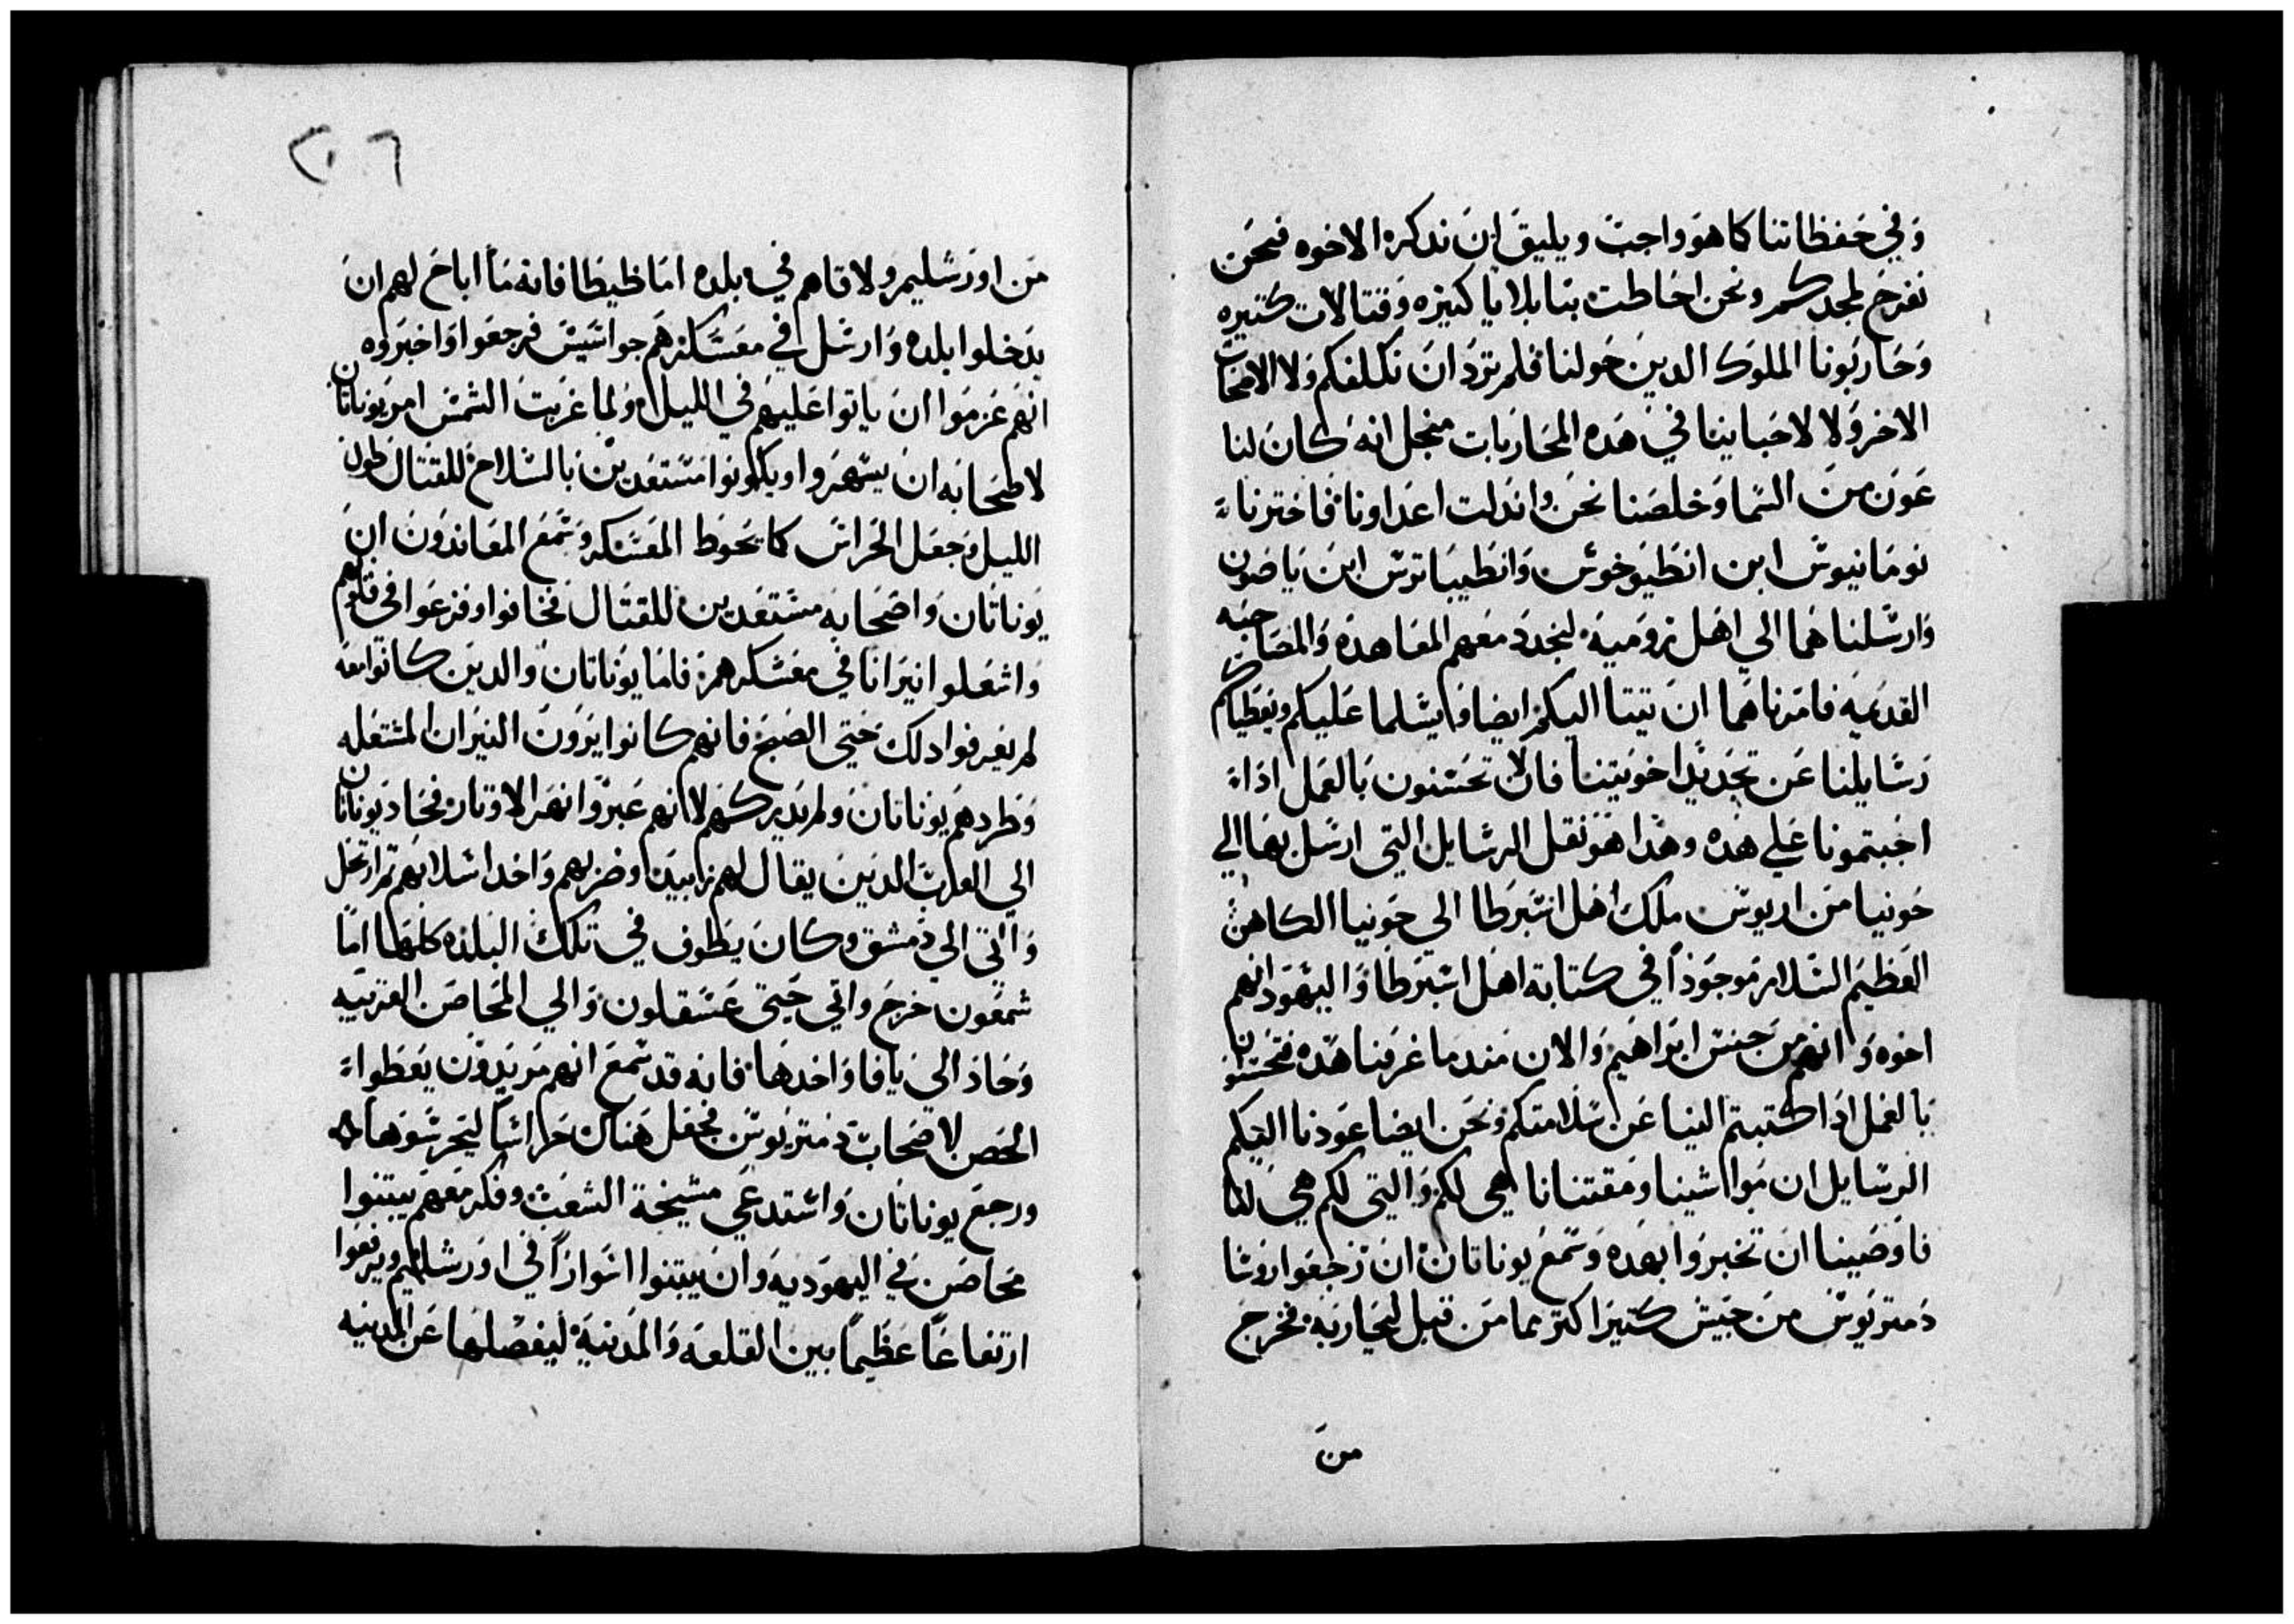 وَفي حَفظاتنا كما هوَ واجبَ ويليقَ ان ندكره الاخوه فنحَن
نفرحَ لمجدكم ونحن احَاطت بنا بلايا كتيره وَقتالات كتيره
وَحَاربَونا الملوك الدينَ حَولنا فلم نردَ انَ نكلفكم وَلا الاصحَاب
الاخر وَلا لاحَبابنا في هَده المحَاربات منجل انهَ كانَ لنا
عَونَ منَ السَما وَخلصَنا نحَن واندلت اعدَاونا فاخترنا
نومَانيوسَ ابن انطَيوخوسَ وَانطَيبَاترسَ ابنَ ياصَون
وَارسَلناهَما الي اهَل روَميهَ لنجددَ معَهم المعَاهدهَ وَالمصَاحبَه
القديمَه فامَرناهَما انَ يتتا اليكم ايضا وَايسَلما عَليكم ويعَطياكم
رسَايلنا عَن تجَديد اخوَيتنا فالان تحَسَنون بَالعمَل ادَا
اجَبتمونا عَلي هَده وهَدا هوَ نقل الرسَايل التي ارسَل بهَا الي
حَونيا منَ اريوسَ ملك اهَل اسَبرَطا الي حَونيا الكاهنَ
العَظيمَ السَلام مَوجَودَاً في كتابة اهَل اسَبرَطا وَاليهَود انهم
اخوه وَانهم منَ جنسَ ابرَاهيمَ وَالان مندما عَرفنا هَده فتحَسَنون
بَالعمَل ادَا كتبتم الينا عَن سَلامتكم ونحَن ايضا عَودنا اليكم
الرسَايل ان مَواشينا ومَقتنانا هي لكم وَالتي لكم هيَ لنا
فاوَصَينا انَ تخبروَا بهَده وَسَمعَ يوناتان انَ رَجعَوا روسَا
دَمتريوَسَ منَ جيَش كتيرَ اكتر مما منَ قبل ليحَاربَه فخرجَ
منَ
٢٠٦
منَ اورَشليم وَلاقاهم في بلده امَا ظيطَا فانه مَا اباحَ لهم انَ
يدَخلوا بلده وَارسَل في معَسَكرهَم جواسَيسَ فرجعَوا وَاخبرَوه
انهَم عَزمَوا انَ ياتوا عَليهَم في الليل وَلما غربتَ الشمسَ امرَ يوناتان
لاصَحَابه انَ يسَهرَوا ويكونوا مسَتعَدينَ بَالسَلاحَ للقتال طَول
الليل وَجعَل الحَراسَ كما يحَوط المعَسَكر وَسَمعَ المعَاندَونَ انَ
يَوناتان وَاصَحَابه مسَتعَدين للقتال فخافوا وفزعَوا في قلوبهم
وَاشعَلوا نيرَانا في معَسَكرهم فامَا يوَناتان وَالدينَ كانوا معَه
لم يعَرفوا دلك حَتي الصَبحَ فانهم كانوا يرَونَ النيرَان المشتعَله
وَطردهَم يوَناتان وَلم يدركهَم لانهم عَبروَا نهَر الاوتار فحَاد يَوناتان
الي العرَبَ الدينَ يقال لهم زابيينَ وضرَبهم وَاخد اسَلابهَم تم ارتحَل
وَاتي الي دَمشق وكانَ يطَوف في تلكَ البَلدَه كلهَا امَا
شمَعون خرجَ وَاتي حَتي عَسَقلون وَالي المحَاصَن القريبَه
وَحَادَ الي يَافا وَاخدهَا فانه قد سَمعَ انهم مَريدَون يعَطَوا
الحَصن لاصَحَابَ دَمتريَوسَ فجعَل هَناك حَراسَاً ليحَرسَوَها
ورجعَ يوناتان وَاسَتدعَي مشيخة الشعَبَ وفكر معَهم يَبتنوا
محَاصَن في اليهوَديه وَانَ يبَتنوا اسَوارَاً في اوَرشليم ويرفعَوا
ارتفاعَاً عَظيماً بين القلعَه وَالمدَينهَ ليفصَلها عَن المدينه